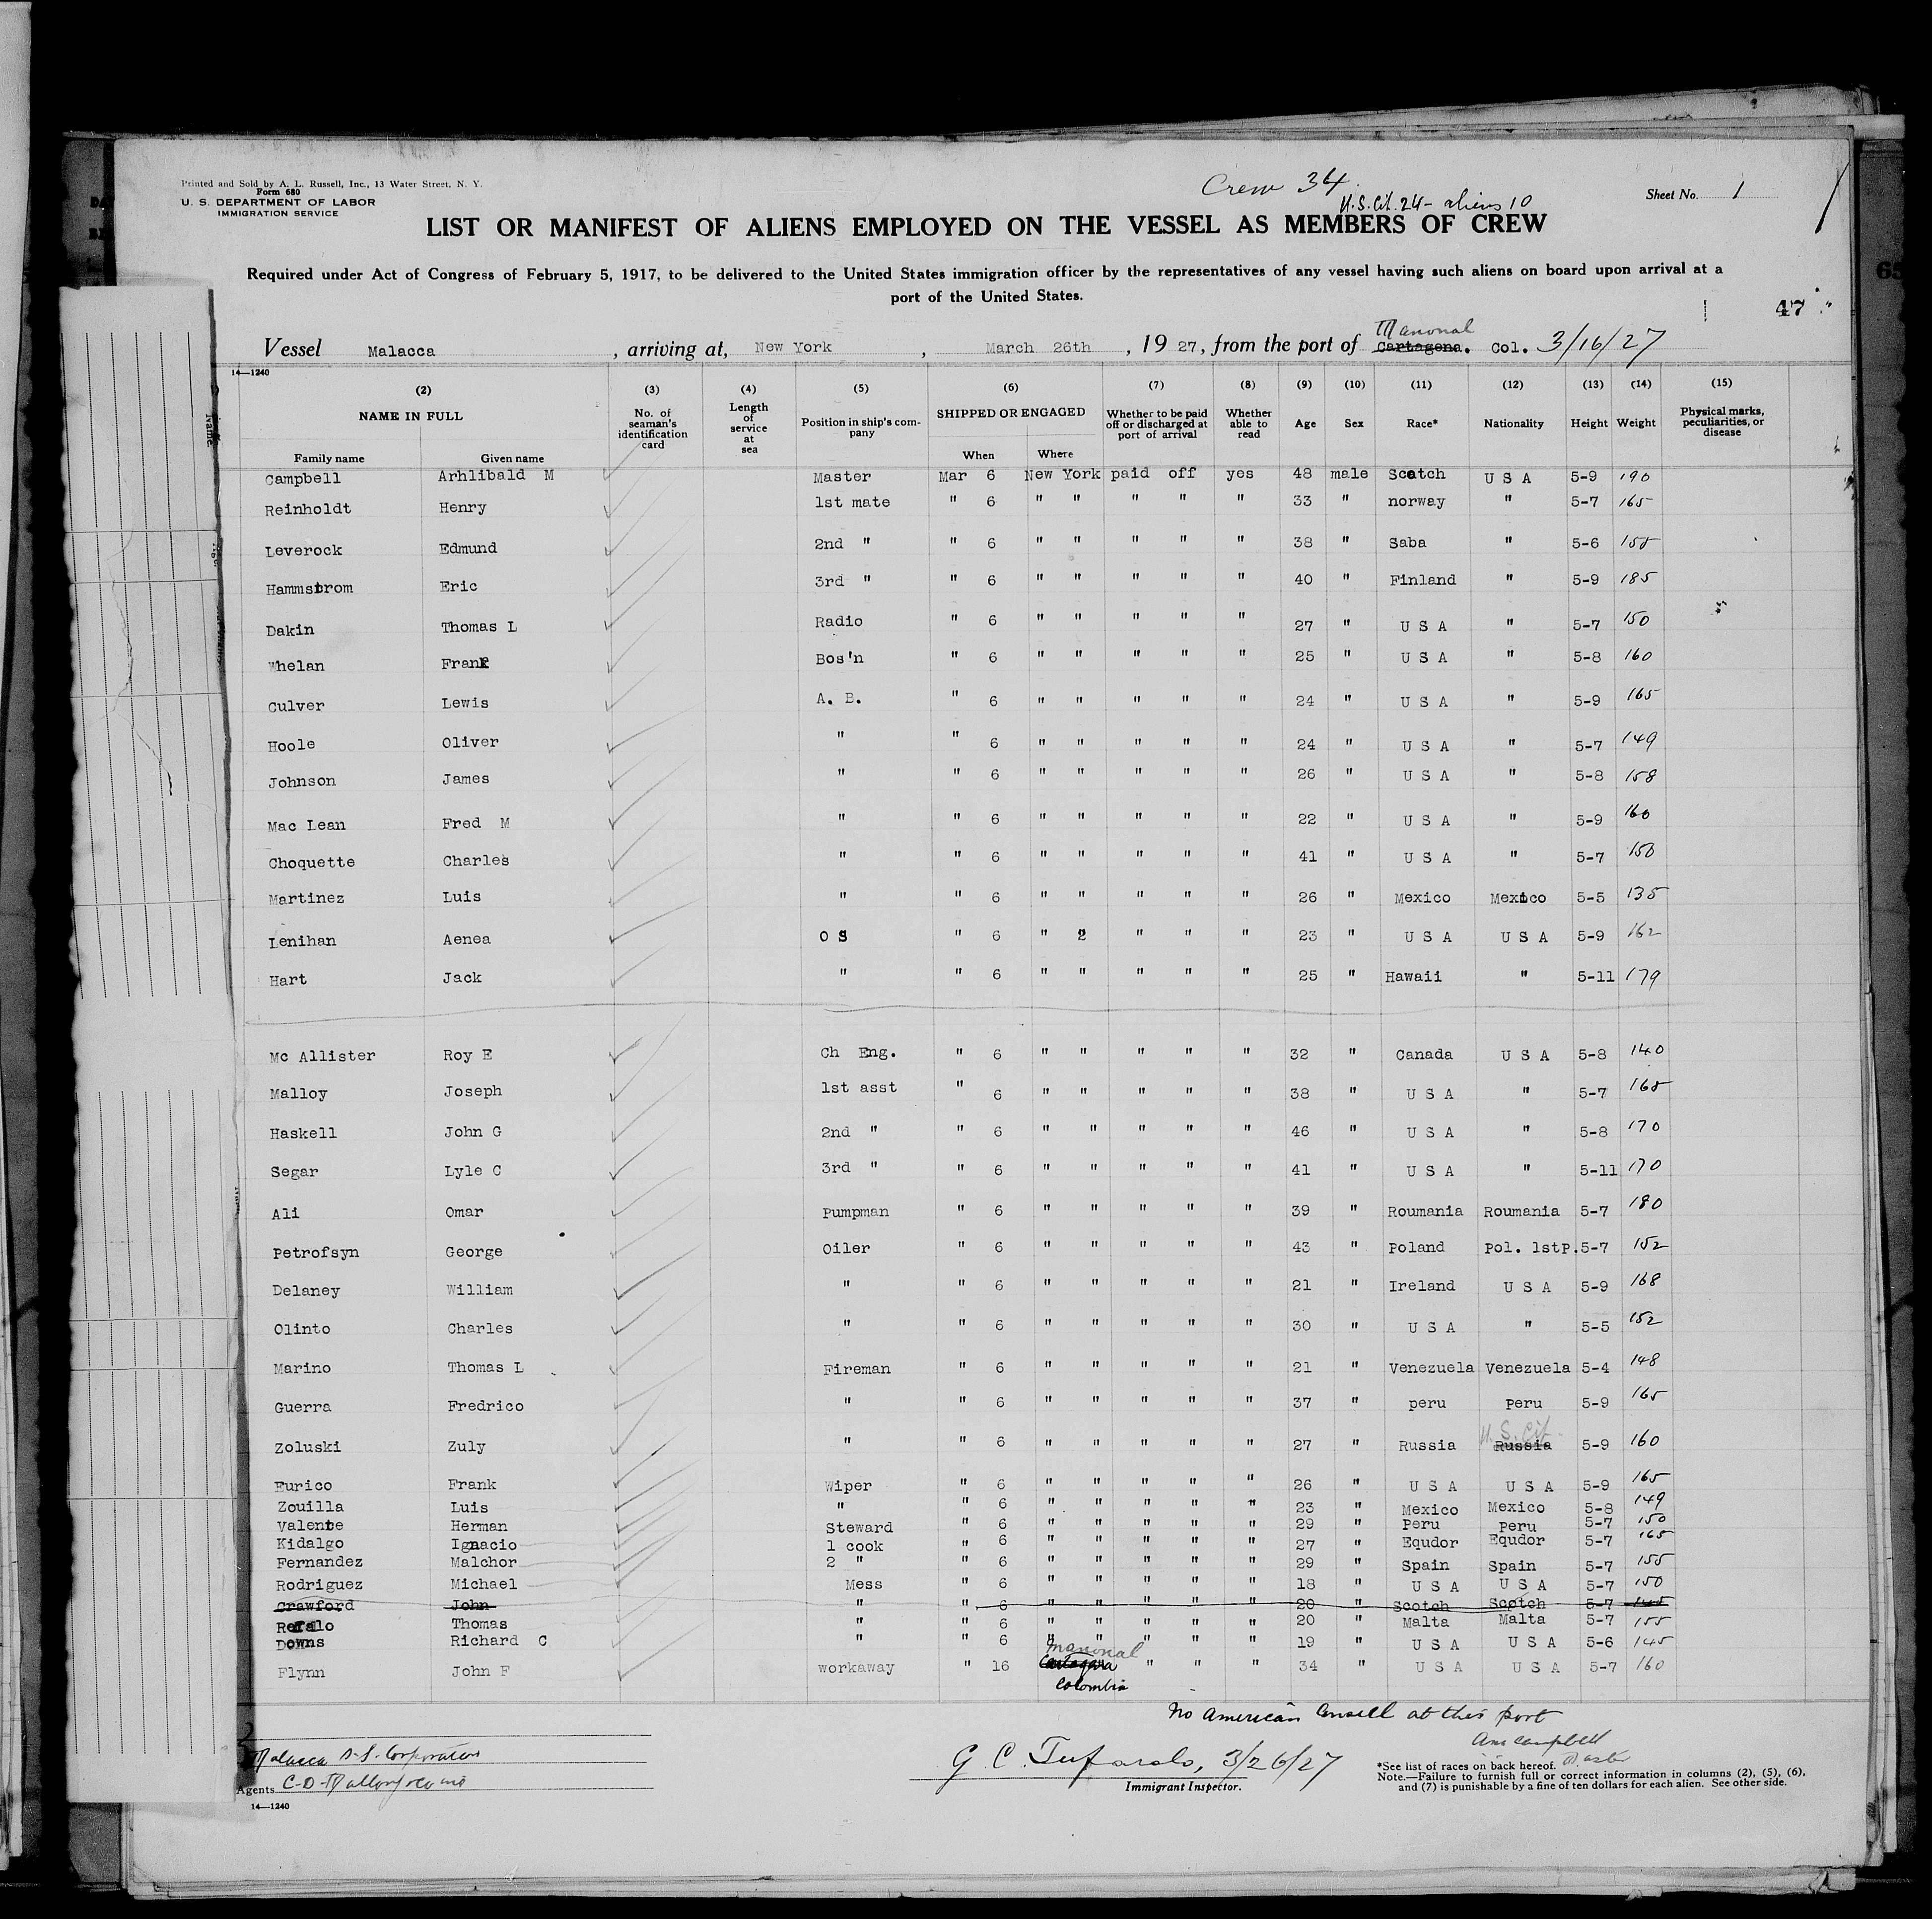 Printed and Sold by A. L. Russell, Inc., 13 Water Street, N. Y.
Form 680
U. S. DEPARTMENT OF LABOR
IMMIGRATION SERVICE
Crew 34
U.S. Cit. 24 - aliens 10
Sheet No. 1
LIST OR MANIFEST OF ALIENS EMPLOYED ON THE VESSEL AS MEMBERS OF CREW
Required under Act of Congress of February 5, 1917, to be delivered to the United States immigration officer by the representatives of any vessel having such aliens on board upon arrival at a
port of the United States.
47
Mamonal
Vessel Malacca, arriving at, New York, March 26th, 1927, from the port of Cartagena. Col. 3/16/27
14—1240
(2) (3) (4) (5) (6) (7) (8) (9) (10) (11) (12) (13) (14) (15)
NAME IN FULL No. of seaman's identification card Length of service at sea Position in ship's company SHIPPED OR ENGAGED Whether to be paid off or discharged at port of arrival Whether able to read Age Sex Race* Nationality Height Weight Physical marks, peculiarities, or disease
Family name Given name When Where
Campbell Arhlibald M Master Mar 6 New York paid off yes 48 male Scotch U S A 5-9 190
Reinholdt Henry 1st mate " 6 " " " " " 33 " norway " 5-7 165
Leverock Edmund 2nd " " 6 " " " " " 38 " Saba " 5-6 155
Hammstrom Eric 3rd " " 6 " " " " " 40 " Finland " 5-9 185
Dakin Thomas L Radio " 6 " " " " " 27 " U S A " 5-7 150
Whelan Frank Bos'n " 6 " " " " " 25 " U S A " 5-8 160
Culver Lewis A. B. " 6 " " " " " 24 " U S A " 5-9 165
Hoole Oliver " " 6 " " " " " 24 " U S A " 5-7 149
Johnson James " " 6 " " " " " 26 " U S A " 5-8 158
Mac Lean Fred M " " 6 " " " " " 22 " U S A " 5-9 160
Choquette Charles " " 6 " " " " " 41 " U S A " 5-7 150
Martinez Luis " " 6 " " " " " 26 " Mexico Mexico 5-5 135
Lenihan Aenea O S " 6 " 2 " " " 23 " U S A U S A 5-9 162
Hart Jack " " 6 " " " " " 25 " Hawaii " 5-11 179
Mc Allister Roy E Ch Eng. " 6 " " " " " 32 " Canada U S A 5-8 140
Malloy Joseph 1st asst " 6 " " " " " 38 " U S A " 5-7 165
Haskell John G 2nd " " 6 " " " " " 46 " U S A " 5-8 170
Segar Lyle C 3rd " " 6 " " " " " 41 " U S A " 5-11 170
Ali Omar Pumpman " 6 " " " " " 39 " Roumania Roumania 5-7 180
Petrofsyn George Oiler " 6 " " " " " 43 " Poland Pol. 1stP. 5-7 152
Delaney William " " 6 " " " " " 21 " Ireland U S A 5-9 168
Olinto Charles " " 6 " " " " " 30 " U S A " 5-5 152
Marino Thomas L Fireman " 6 " " " " " 21 " Venezuela Venezuela 5-4 148
Guerra Fredrico " " 6 " " " " " 37 " peru Peru 5-9 165
Zoluski Zuly " " 6 " " " " " 27 " Russia Russia U.S. Cit. 5-9 160
Eurico Frank Wiper " 6 " " " " " 26 " U S A U S A 5-9 165
Zouilla Luis " " 6 " " " " " 23 " Mexico Mexico 5-8 149
Valente Herman Steward " 6 " " " " " 29 " Peru Peru 5-7 150
Kidalgo Ignacio 1 cook " 6 " " " " " 27 " Equdor Equdor 5-7 165
Fernandez Malchor 2 " " 6 " " " " " 29 " Spain Spain 5-7 155
Rodriguez Michael Mess " 6 " " " " " 18 " U S A U S A 5-7 150
Crawford John " " 6 " " " " " 20 " Scotch Scotch 5-7 145
Thomas " " 6 " " " " " 20 " Malta Malta 5-7 155
Downs Richard C " " 6 " " " " " 19 " U S A U S A 5-6 145
Mamonal
Flynn John F workaway " 16 Cartagena " " " 34 " U S A U S A 5-7 160
Colombia
No American Consell at this port
AM Campbell
Master
Malacca S.S. Corporation
Agents C-D-Mallory
G. C. 3/26/27
Immigrant Inspector.
*See list of races on back hereof.
Note.—Failure to furnish full or correct information in columns (2), (5), (6),
and (7) is punishable by a fine of ten dollars for each alien. See other side.
14—1240